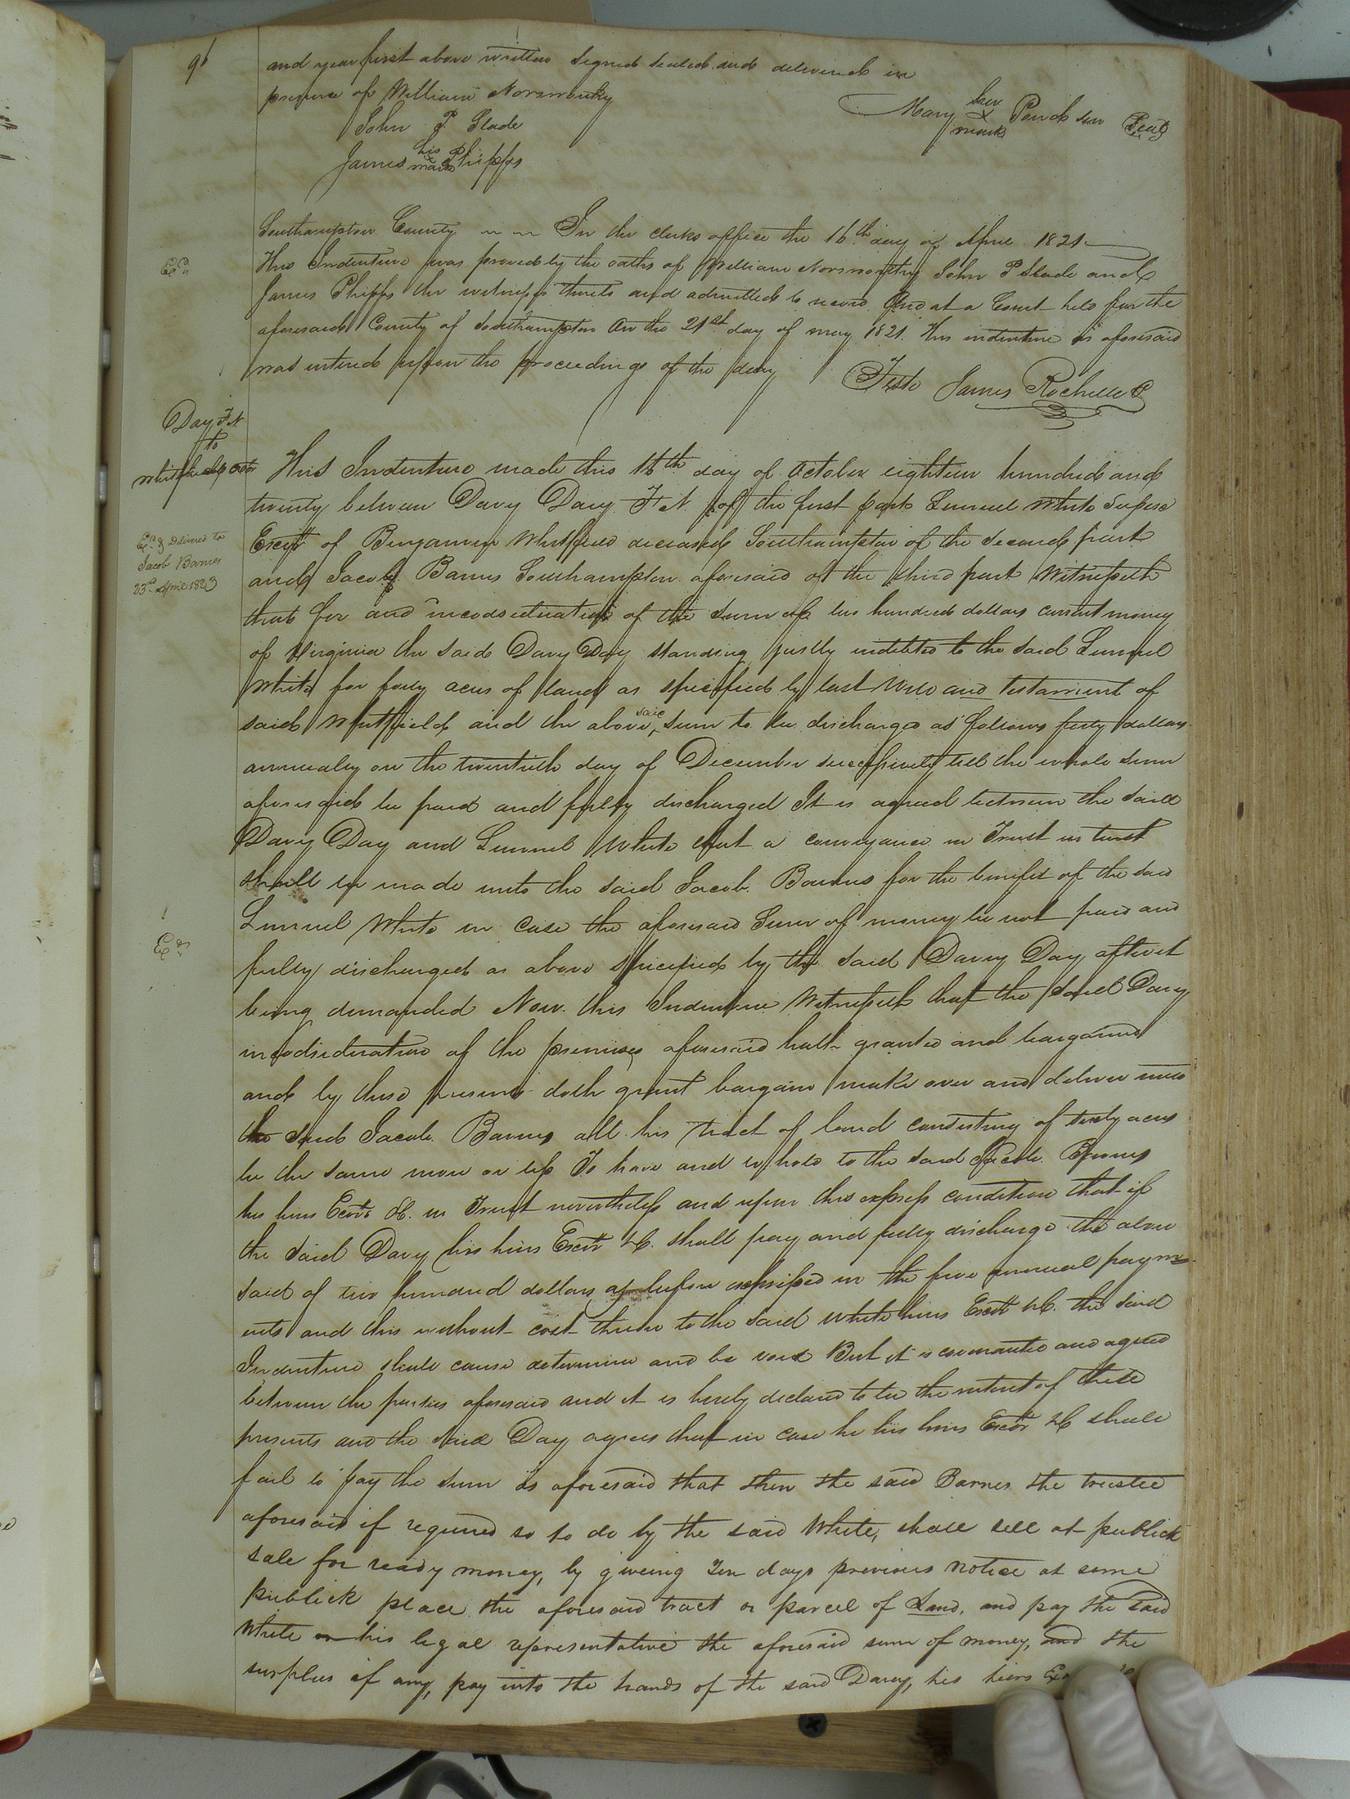 96
and year first above written Signed Sealed and delivered in
presence of William Norsworthy
Mary her X mark Pendleton Seal
John P Slade
James his X mark Phipps
Southampton County In the clerks office the 16th day of April 1821
This Indenture was proved by the oaths of William Norsworthy John P Slade and
James Phipps the witnesses thereto and admitted to record And at a Court held for the
aforesaid County of Southampton on the 21st day of may 1821. This indenture as aforesaid
was entered upon the proceedings of the day
Teste James Rochelle C
Day F N
to
Whitfields Exor
Exd
delivered to
Jacob Barnes
23rd April 1823
This Indenture made this 16th day of October eighteen hundred and
twenty between Davy Day F N. of the first part Lemuel White
Exectr of Benjamin Whitfield deceased Southampton of the Second part
and Jacob Barnes Southampton aforesaid of the third part Witnesseth
that for and inconsideration of the sum of two hundred dollars current money
of Virginia the said Davy Day standing justly indebted to the said Lemuel
White for forty acres of land as specified by last Will and Testament of
said Whitfield and the above said sum to be discharged as follows forty dollars
annually on the twentieth day of December successively till the whole sum
aforesaid be paid and fully discharged It is agreed between the said
Davy Day and Lemuel White that a conveyance in Trust in trust
shall be made unto the said Jacob Barnes for the benefit of the said
Lemuel White in case the aforesaid Sum of money be not paid and
fully discharged as above specified by the said Davy Day after it
being demanded Now this Indenture Witnesseth that the said Davy
inconsideration of the premises aforesaid hath granted and bargained
and by these presents doth grant bargain make over and deliver unto
the said Jacob Barnes all his tract of land consisting of forty acres
be the same more or less To have and to hold to the said Jacob Barnes
his heirs Exors &C. in Trust nevertheless and upon this express condition that if
the said Davy his heirs Exectr &C. shall pay and fully discharge the above
said of two hundred dollars as before expressed in the five annual paym
ents and this without cost there to the said White heirs Exectr &C. the said
Indenture shall cease determine and be void But it is covenanted and agreed
between the parties aforesaid and it is hereby declared to be the intent of these
presents and the said Day agrees that in case he his heirs Exectr &C shall
fail to pay the sum as aforesaid that then the said Barnes the trustee
aforesaid if required so to do by the said White, shall sell at publick
sale for ready money, by giveing Ten days previous notice at some
publick place the aforesaid tract or parcel of Land, and pay the said
White or his legal representative the aforesaid sum of money, and the
surplus if any, pay into the hands of the said Davey, his heirs